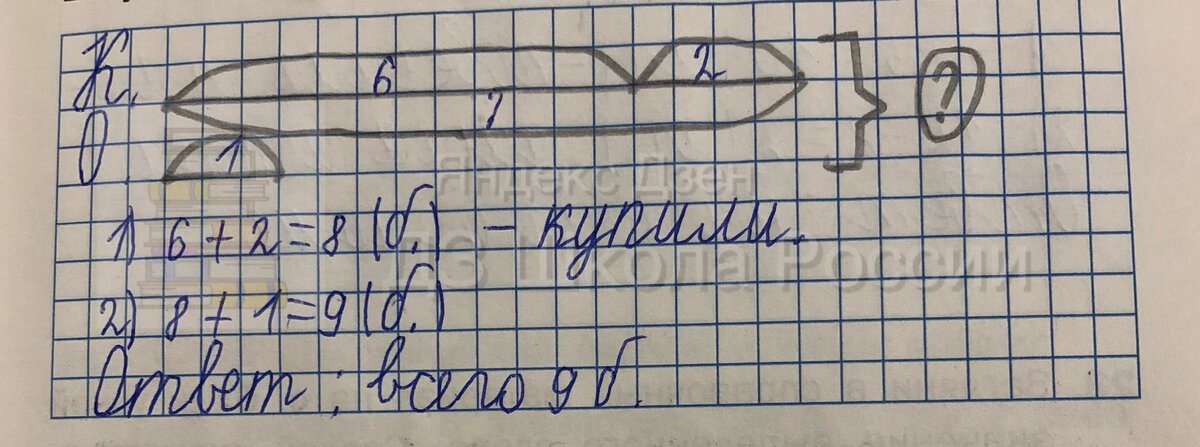 К. 6 2 ?
?
О. 1
Яндекс Дзен
1) 6 + 2 = 8 (б.) – купили.
ДЗ Школа России
2) 8 + 1 = 9 (б.)
Ответ: всего 9 б.